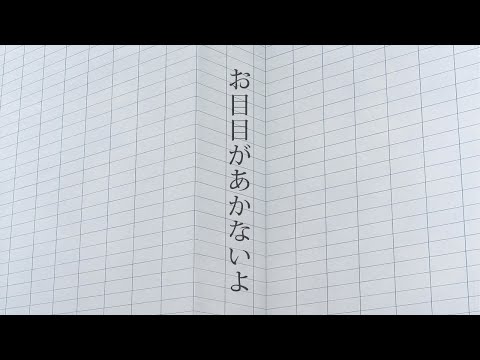 お目目があかないよ